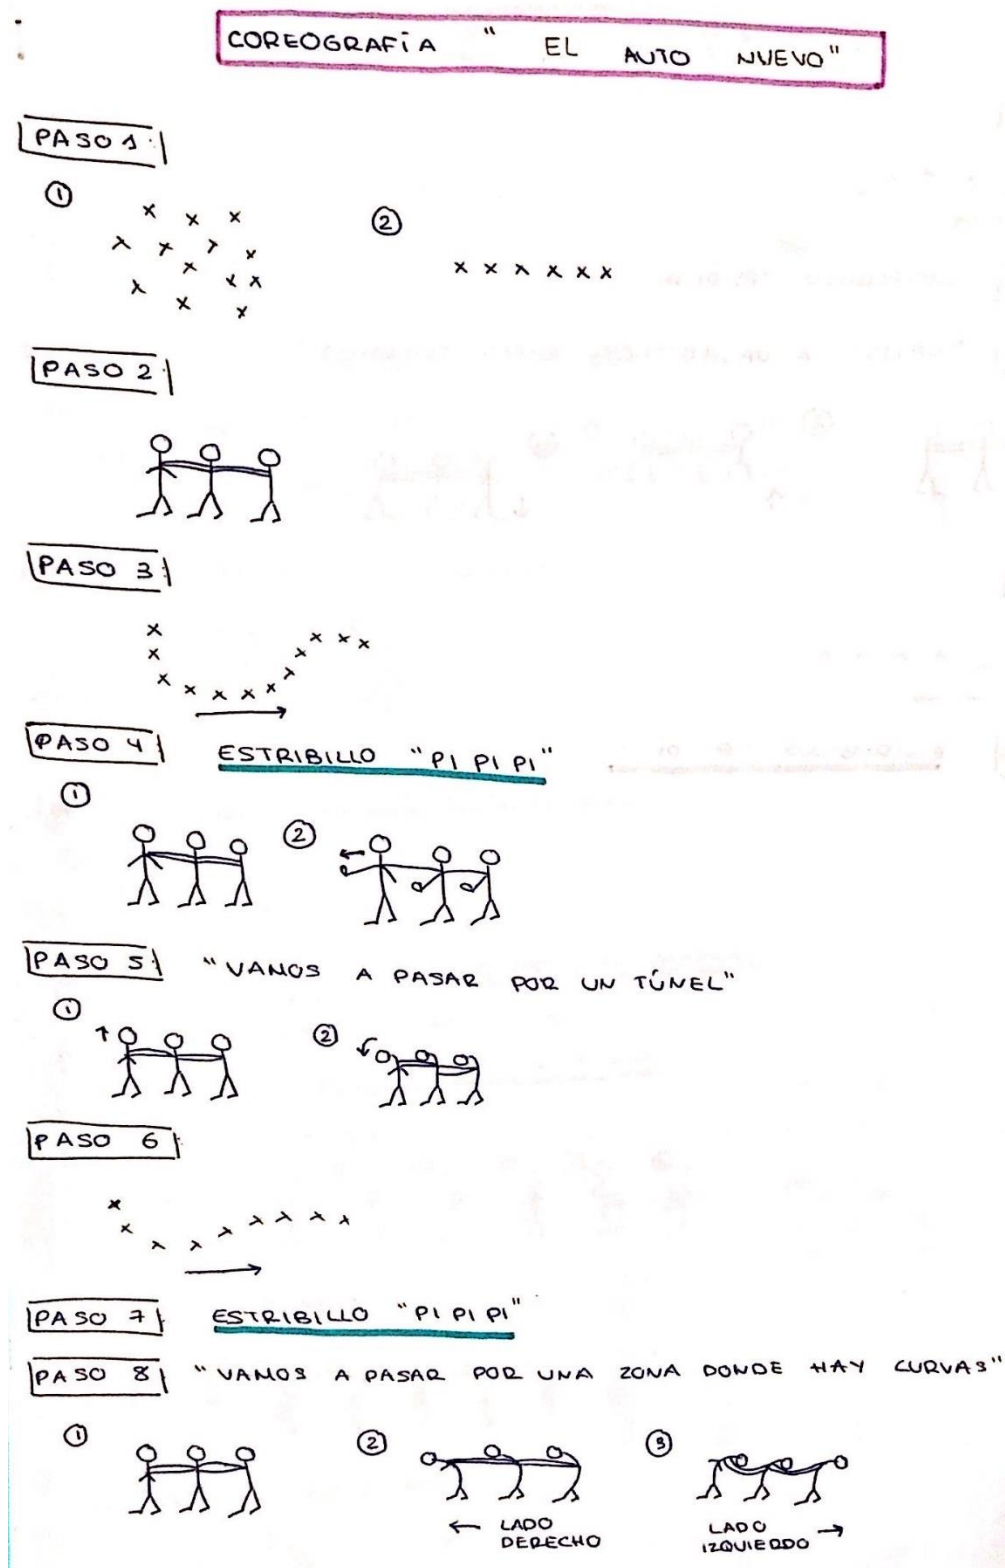 COREOGRAFÍA " EL AUTO NUEVO"
PASO 1:
1
2
PASO 2
PASO 3:
PASO 4
ESTRIBILLO "PI PI PI"
1
2
PASO 5:
"VAMOS A PASAR POR UN TÚNEL"
1
2
PASO 6
PASO 7
ESTRIBILLO "PI PI PI"
PASO 8
"VAMOS A PASAR POR UNA ZONA DONDE HAY CURVAS"
1
2
3
← LADO
DERECHO
LADO →
IZQUIERDO